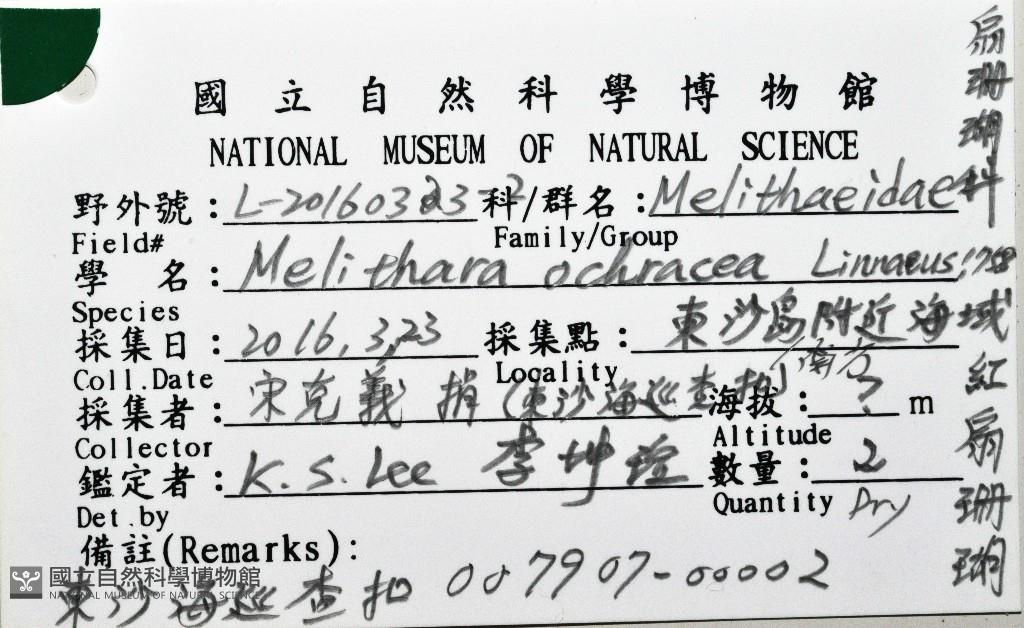 國立自然科學博物館
NATIONAL MUSEUM OF NATURAL SCIENCE
野外號：L-20160323-2 科/群名：Melithaeidae
Field# Family/Group
學 名：Melithara ochracea Linnaeus, 1758
Species
採集日：2016,3,23 採集點：東沙島附近海域
Coll.Date Locality (南方)
採集者：宋克義 捐 (東沙海巡查扣) 海拔：? m
Collector Altitude
鑑定者：K.S. Lee 李坤瑄 數量：2
Det.by Quantity Dry
備註(Remarks)：
東沙海巡查扣 007907-00002
扇珊瑚科
紅扇珊瑚
國立自然科學博物館
NATIONAL MUSEUM OF NATURAL SCIENCE